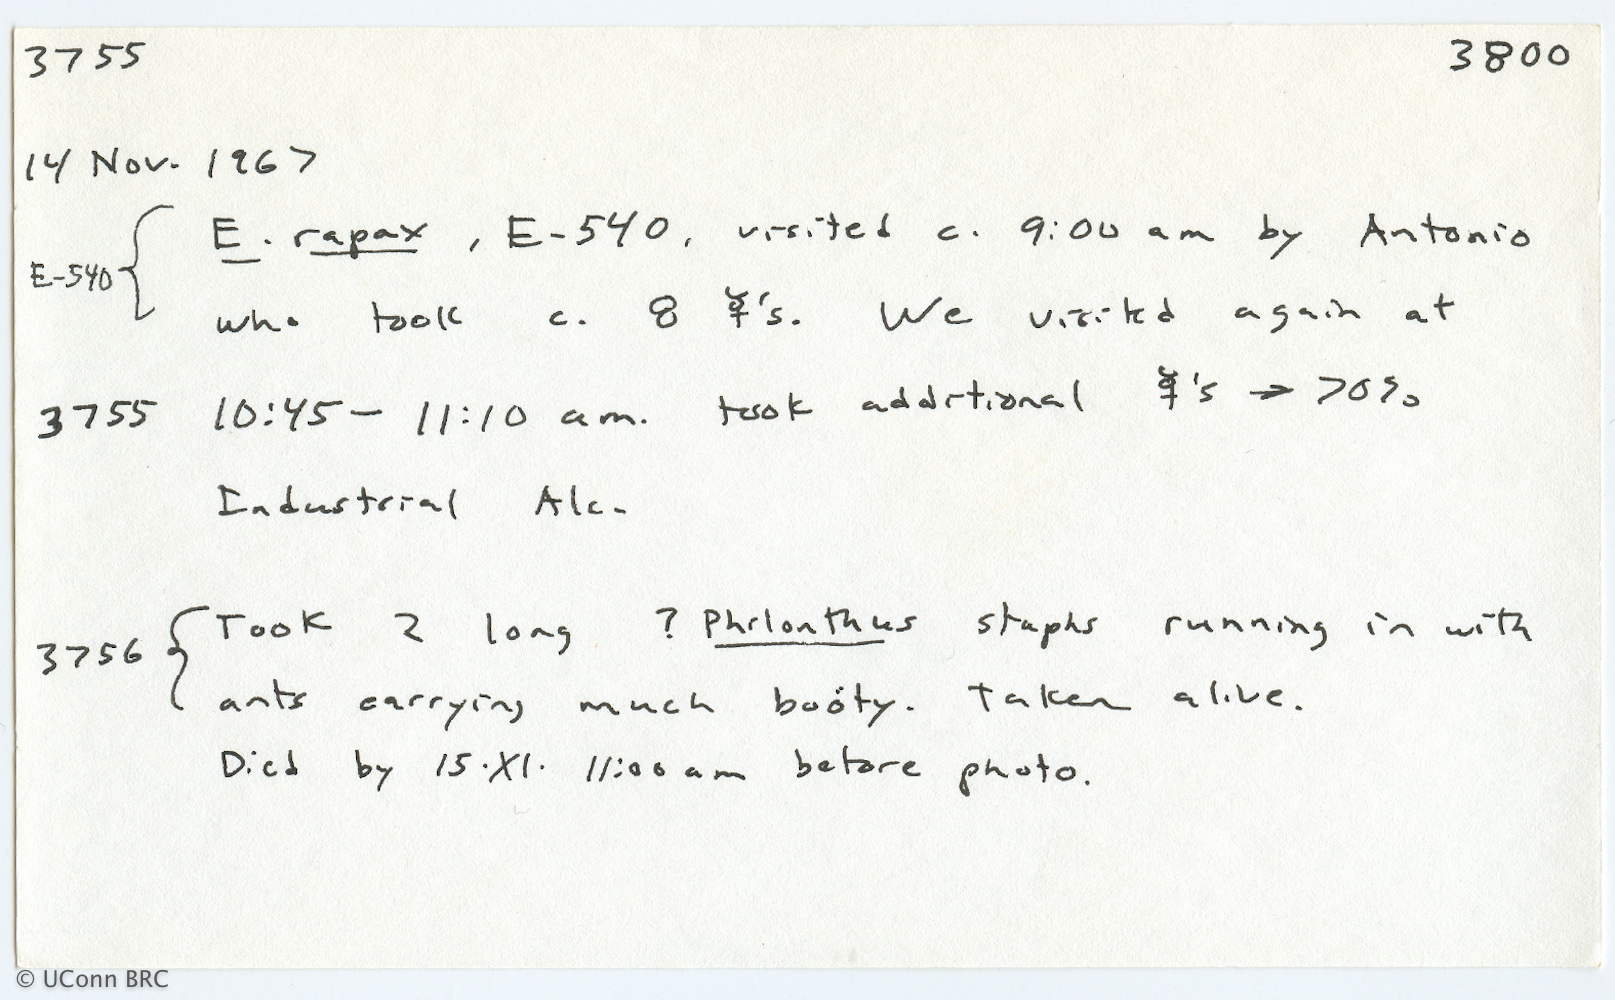 3755 3800
14 Nov. 1967
E. rapax, E-540, visited c. 9:00 am by Antonio
E-540
who took c. 8 ☿'s. We visited again at
3755 10:45 - 11:10 am. took additional ☿'s → 70%
Industrial Alc.
Took 2 long ? Philonthus staphs running in with
3756
ants carrying much booty. Taken alive.
Died by 15.XI. 11:00 am before photo.
© UConn BRC